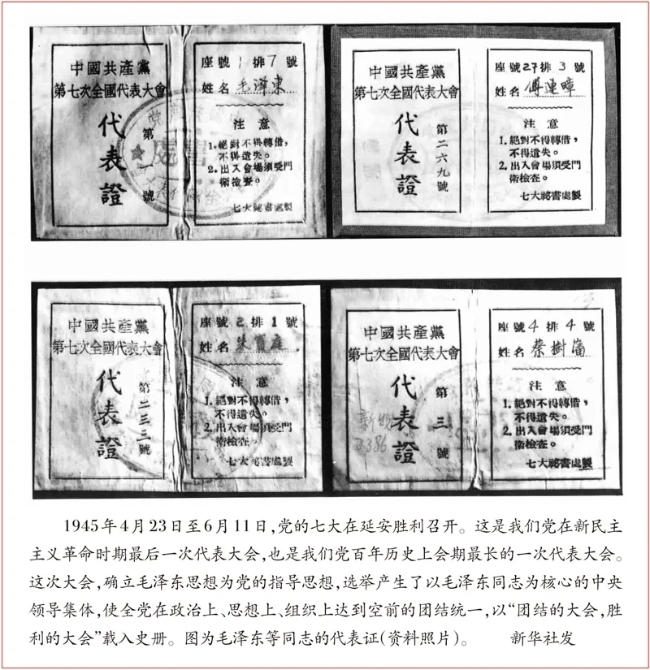 中國共產黨
第七次全國代表大會
代表證
第一號
座號1排7號
姓名 毛澤東
注意
1. 絕對不得轉借，
不得遺失。
2. 出入會場須受門
衛檢查。
七大祕書處製
中國共產黨
第七次全國代表大會
代表證
第二六九號
座號27排3號
姓名 傅連暲
注意
1. 絕對不得轉借，
不得遺失。
2. 出入會場須受門
衛檢查。
七大祕書處製
中國共產黨
第七次全國代表大會
代表證
第二三三號
座號2排1號
姓名
注意
1. 絕對不得轉借，
不得遺失。
2. 出入會場須受門
衛檢查。
七大祕書處製
中國共產黨
第七次全國代表大會
代表證
第三號
座號4排4號
姓名 蔡樹藩
注意
1. 絕對不得轉借，
不得遺失。
2. 出入會場須受門
衛檢查。
七大祕書處製
1945年4月23日至6月11日，党的七大在延安胜利召开。这是我们党在新民主
主义革命时期最后一次代表大会，也是我们党百年历史上会期最长的一次代表大会。
这次大会，确立毛泽东思想为党的指导思想，选举产生了以毛泽东同志为核心的中央
领导集体，使全党在政治上、思想上、组织上达到空前的团结统一，以“团结的大会，胜
利的大会”载入史册。图为毛泽东等同志的代表证（资料照片）。 新华社发